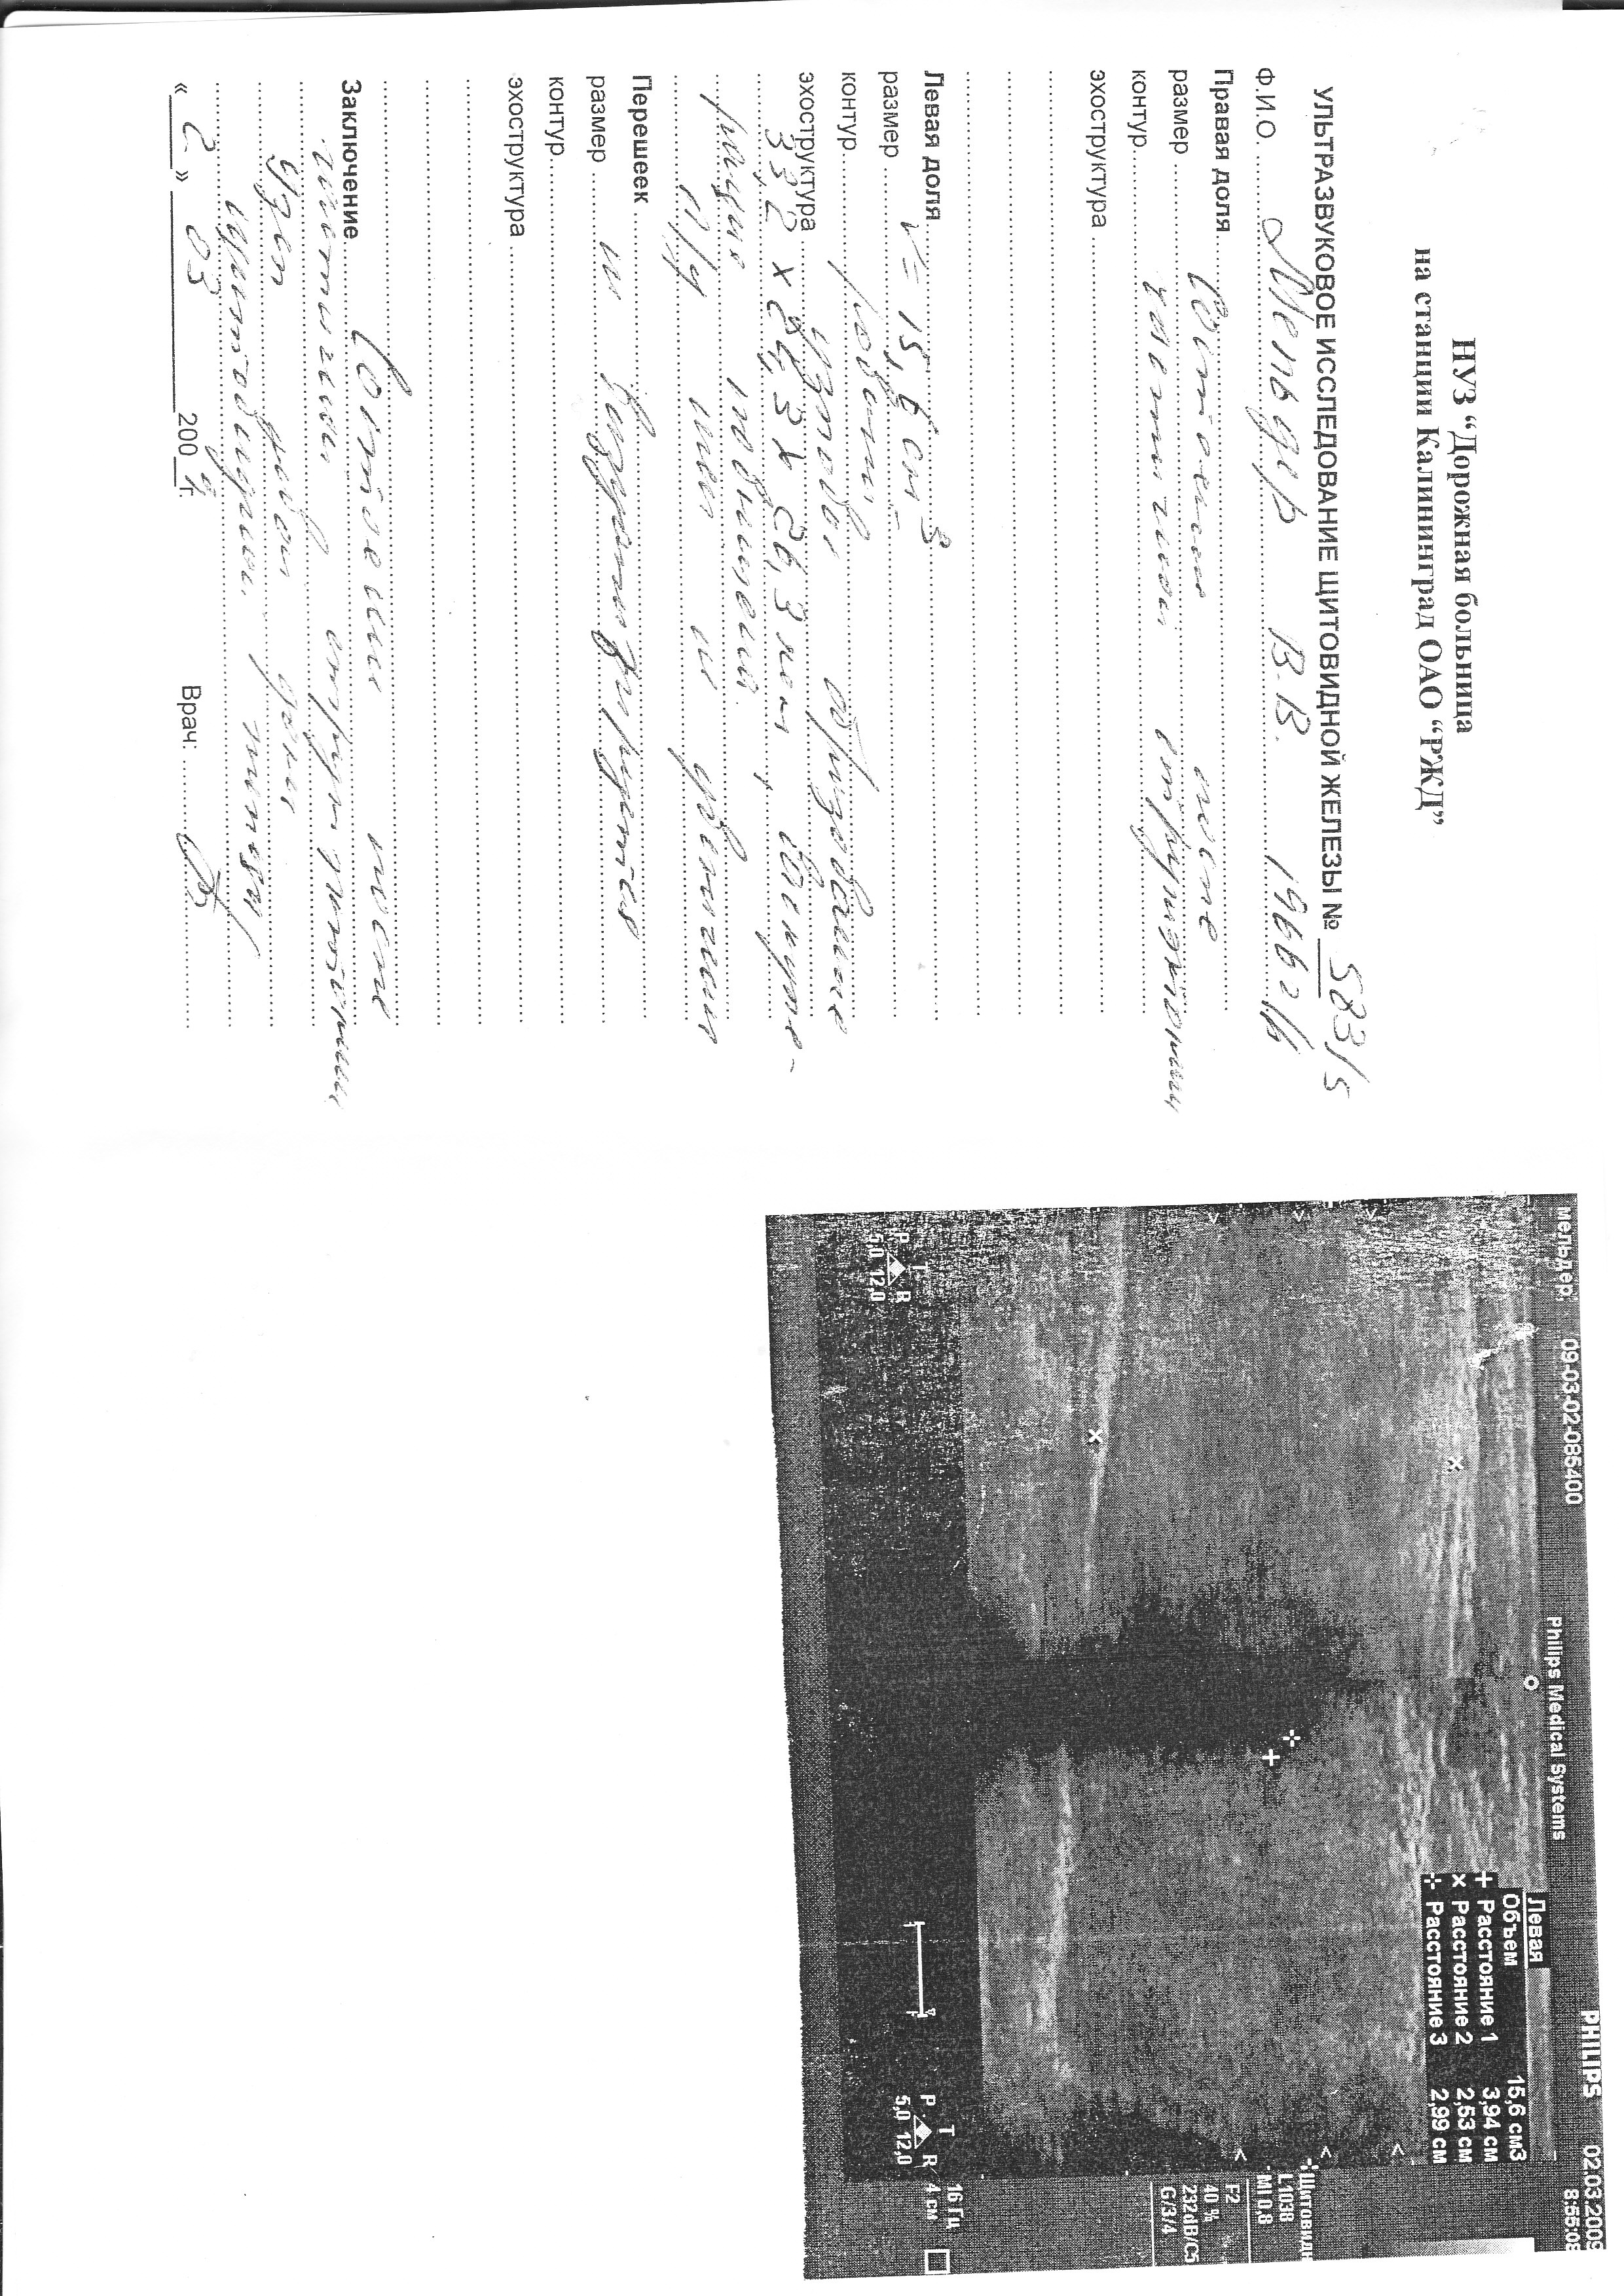 НУЗ “Дорожная больница
на станции Калининград ОАО “РЖД”
УЛЬТРАЗВУКОВОЕ ИССЛЕДОВАНИЕ ЩИТОВИДНОЙ ЖЕЛЕЗЫ № 583/5
Ф.И.О. Мельдер В.В. 1966 г/р
Правая доля Состояние после
размер частичной
контур
эхоструктура
Левая доля V= 15,6 см3
размер
контур ровный
эхоструктура узловое образование
33,2 х 24,3 х 26,3 мм,
Л/у шеи не увеличены
Перешеек
размер не
контур
эхоструктура
Заключение Состояние после
частичной
Узел левой доли
щитовидной железы
« 2 » 03 2009 г. Врач:
мельдер, 09-03-02-085400 Philips Medical Systems PHILIPS 02.03.2009
8:55:08
Левая
Объем 15,6 см3
+ Расстояние 1 3,94 см
× Расстояние 2 2,53 см
Расстояние 3 2,99 см
Щитовидн
L1038
MI 0,8
F2
40 %
232dB/C5
G/3/4
P T R
5,0 12,0
P T R
5,0 12,0
16 Гц
4 см